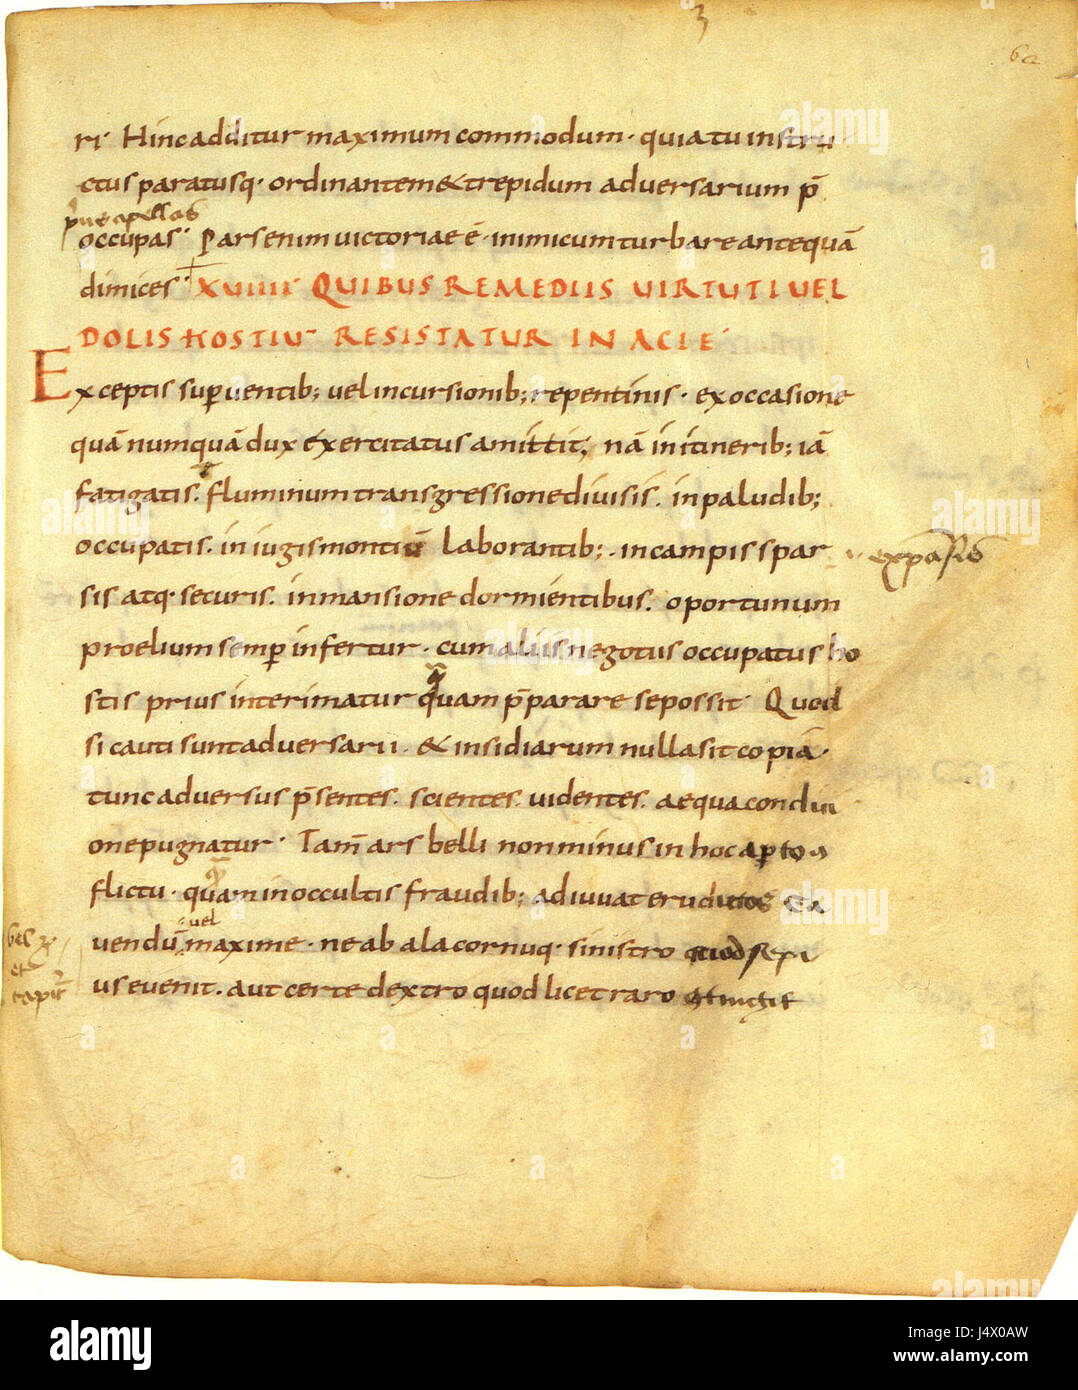 3
62
ri· Hinc additur maximum commodum· quia tu instru
ctus paratusq· ordinantem & trepidum adversarium p̄
occupas· Pars enim victoriae ē· inimicum turbare antequā
dimices· XVIIII QUIBUS REMEDIIS VIRTUTI VEL
DOLIS HOSTIŪ RESISTATUR IN ACIE·
Exceptis supuentib; vel incursionib; repentinis· ex occasione
quā numquā dux exercitatus amittit; nā in itinerib; iā
fatigatis· fluminum transgressione divisis· in paludib;
occupatis· in iugis montiū laborantib;· in campis spar
expansis
sis atq· securis· in mansione dormientibus· oportunum
proelium semp infertur· cum aliis negotiis occupatus ho
stis prius interimatur quam p̄parare se possit· Quod
si cauti sunt adversarii· & insidiarum nulla sit copiā·
tunc adversus p̄sentes· scientes· videntes· aequa condici
one pugnatur· Tam̄ ars belli non minus in hoc apto
flictu· quam in occultis fraudib; adiuvat eruditos Ca
vel
vendū maxime· ne ab ala cornuq· sinistro quod sepi
us evenit· aut certe dextro quod licet raro
et
alamy
Image ID: J4X0AW
www.alamy.com